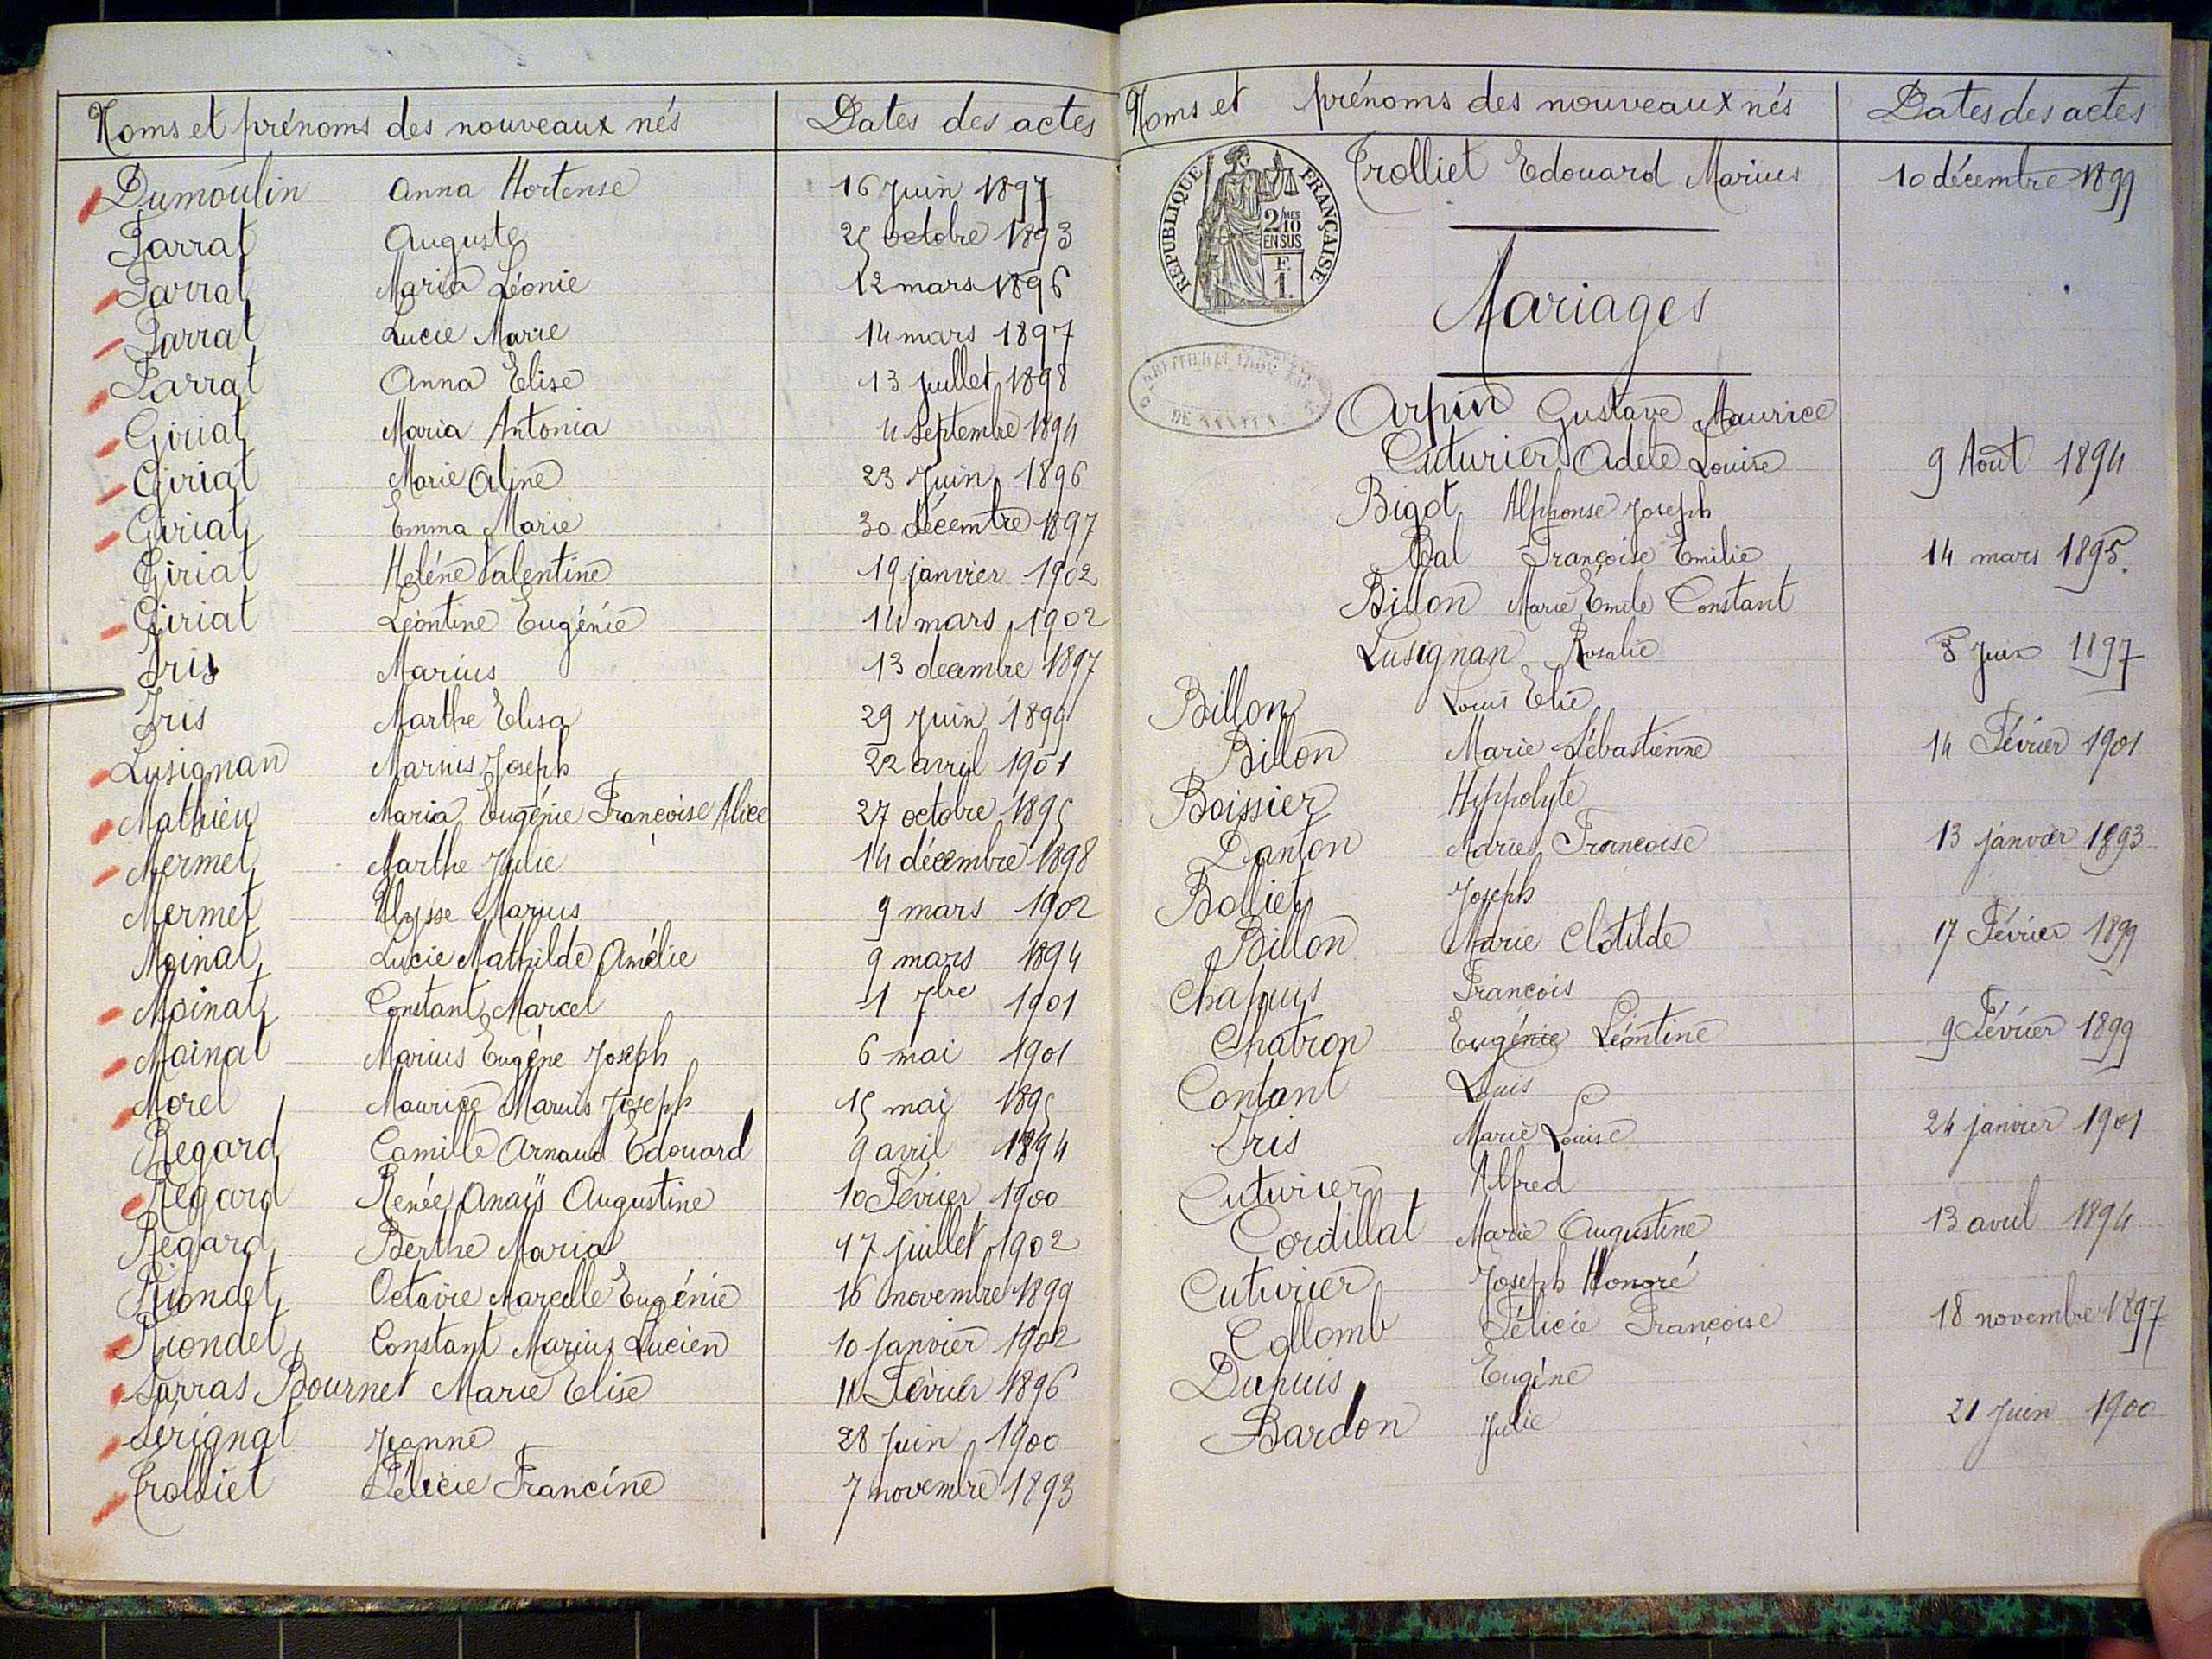 Noms et prénoms des nouveaux nés Dates des actes
Dumoulin Anna Hortense 16 Juin 1897
Farrat Auguste 25 octobre 1893
Farrat Maria Léonie 12 mars 1896
Farrat Lucie Marie 14 mars 1897
Farrat Anna Elise 13 juillet 1898
Giriat Maria Antonia 4 Septembre 1894
Giriat Marie Aline 23 Juin 1896
Giriat Emma Marie 30 décembre 1897
Giriat Heléne Valentine 19 janvier 1902
Giriat Léontine Eugénie 14 mars 1902
Iris Marius 13 decembre 1897
Iris Marthe Elisa 29 Juin 1899
Lusignan Marius Joseph 22 avril 1901
Mathieu Maria Eugénie Françoise Alice 27 octobre 1895
Mermet Marthe Julie 14 décembre 1898
Mermet Ulysse Marius 9 mars 1902
Moinat Lucie Mathilde Amélie 9 mars 1894
Moinat Constant Marcel 1 7bre 1901
Moinat Marius Eugéne Joseph 6 mai 1901
Morel Maurice Marius Joseph 15 mai 1895
Regard Camille Arnaud Edouard 9 avril 1894
Regard Renée Anaïs Augustine 10 Février 1900
Regard Berthe Maria 17 juillet 1902
Riondet Octavie Marcelle Eugénie 16 novembre 1899
Riondet Constant Marius Lucien 10 janvier 1902
Sarras Bournet Marie Elise 11 Février 1896
Sérignat Jeanne 28 Juin 1900
Trolliet Félicie Francine 7 novembre 1893
Noms et prénoms des nouveaux nés Dates des actes
REPUBLIQUE FRANÇAISE
2/10 MES
EN SUS
F.
1.
Trolliet Edouard Marius 10 décembre 1899
Mariages
DE NANTUA
Arpin Gustave Maurice
Cuturier Adele Louise 9 Aout 1894
Bigot Alphonse Joseph
Bal Françoise Emilie 14 mars 1895.
Billon Marie Emile Constant
Lusignan Rosalie 8 Juin 1897
Billon Louis Elie
Billon Marie Sébastienne 14 Février 1901
Boissier Hippolyte
Danton Marie Françoise 13 janvier 1893
Bolliet Joseph
Billon Marie Clotilde 17 Février 1899
Chapuis François
Chatron Eugénie Léontine 9 Février 1899
Contant Louis
Iris Marie Louise 24 janvier 1901
Cuturier Alfred
Cordillat Marie Augustine 13 avril 1894
Cuturier Joseph Honoré
Collomb Félicie Françoise 18 novembre 1897
Dupuis Eugéne
Bardon Julie 21 Juin 1900